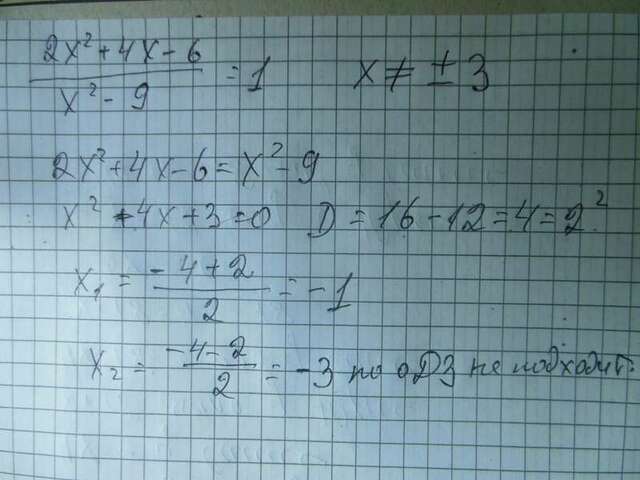 (2x² + 4x - 6)/(x² - 9) = 1 x ≠ ± 3
2x² + 4x - 6 = x² - 9
x² + 4x + 3 = 0 D = 16 - 12 = 4 = 2²
x₁ = (-4 + 2)/2 = -1
x₂ = (-4 - 2)/2 = -3 по ОДЗ не подходит.